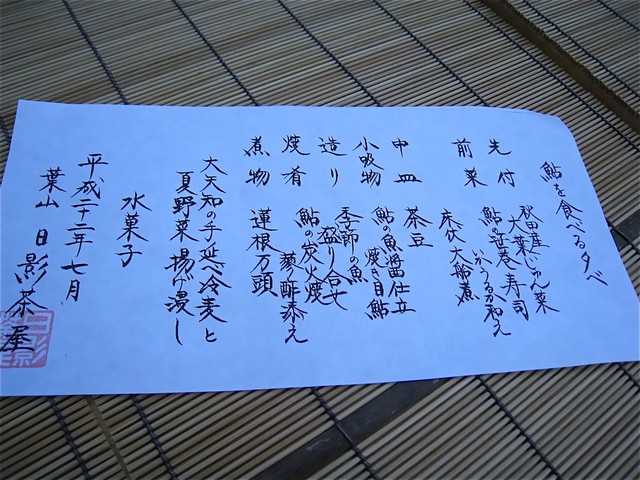 鮎を食べる夕べ
先付 秋田産じゅん菜
大葉
前菜 鮎の笹巻寿司
うるか和え
床伏大船煮
中皿 茶豆
小吸物 鮎の魚醤仕立
焼き目鮎
造り 季節の魚
盛り合せ
焼肴 鮎の炭火焼
蓼酢添え
煮物 蓮根万頭
大矢知の手延べ冷麦と
夏野菜揚げ浸し
水菓子
平成二十二年七月
葉山 日影茶屋